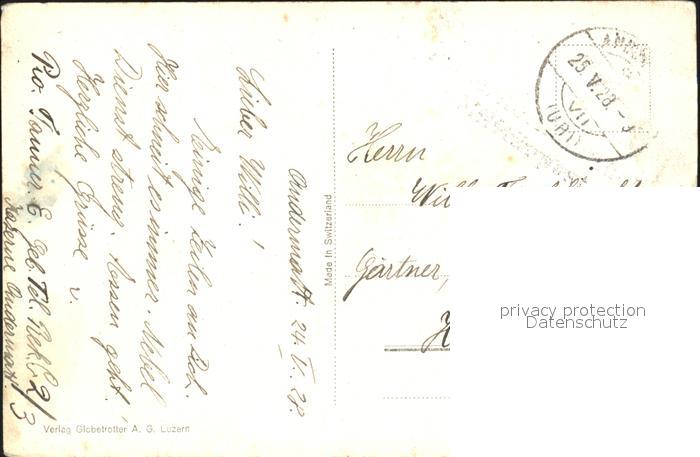 Andermatt. 24. V. 28.
Lieber Willi!
Einige Zeilen an Dich.
Hier schneit es immer. Nebel
Dienst streng. Essen geht!
Herzliche Grüsse v.
Tanner E. Geb. Tel. Rekr. 2/3
Kaserne Andermatt
Verlag Globetrotter A. G. Luzern
Made in Switzerland
25. V. 28. -
VII
(URI)
Herrn
Gärtner,
privacy protection
Datenschutz